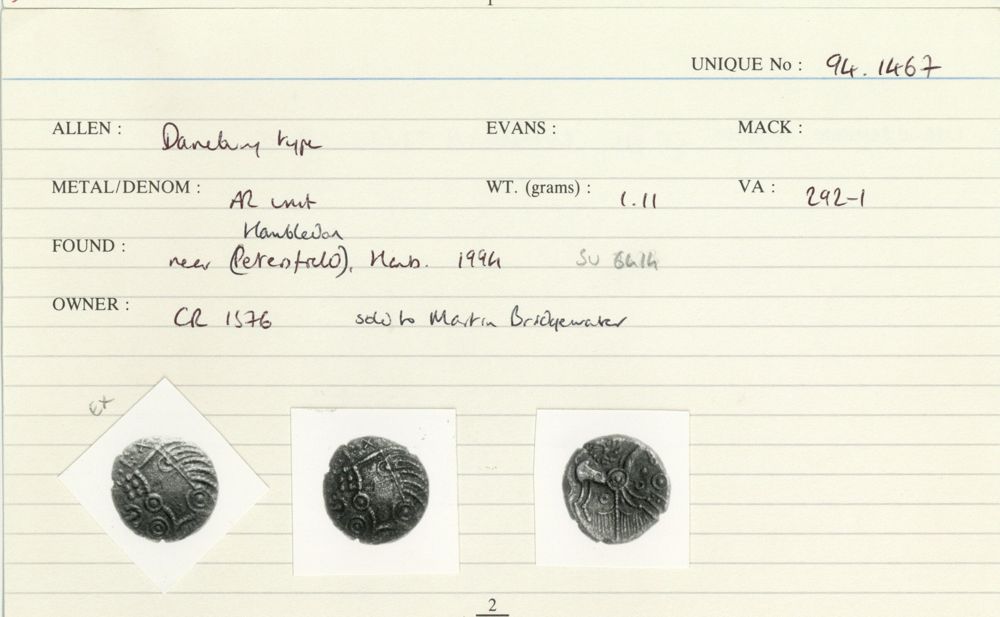 UNIQUE No : 94.1467
ALLEN : Danebury type EVANS : MACK :
METAL/DENOM : AR unit WT. (grams) : 1.11 VA : 292-1
Hambledon
FOUND : near (Petersfield), Hants. 1994 SU 6414
OWNER : CR 1576 sold to Martin Bridgewater
2